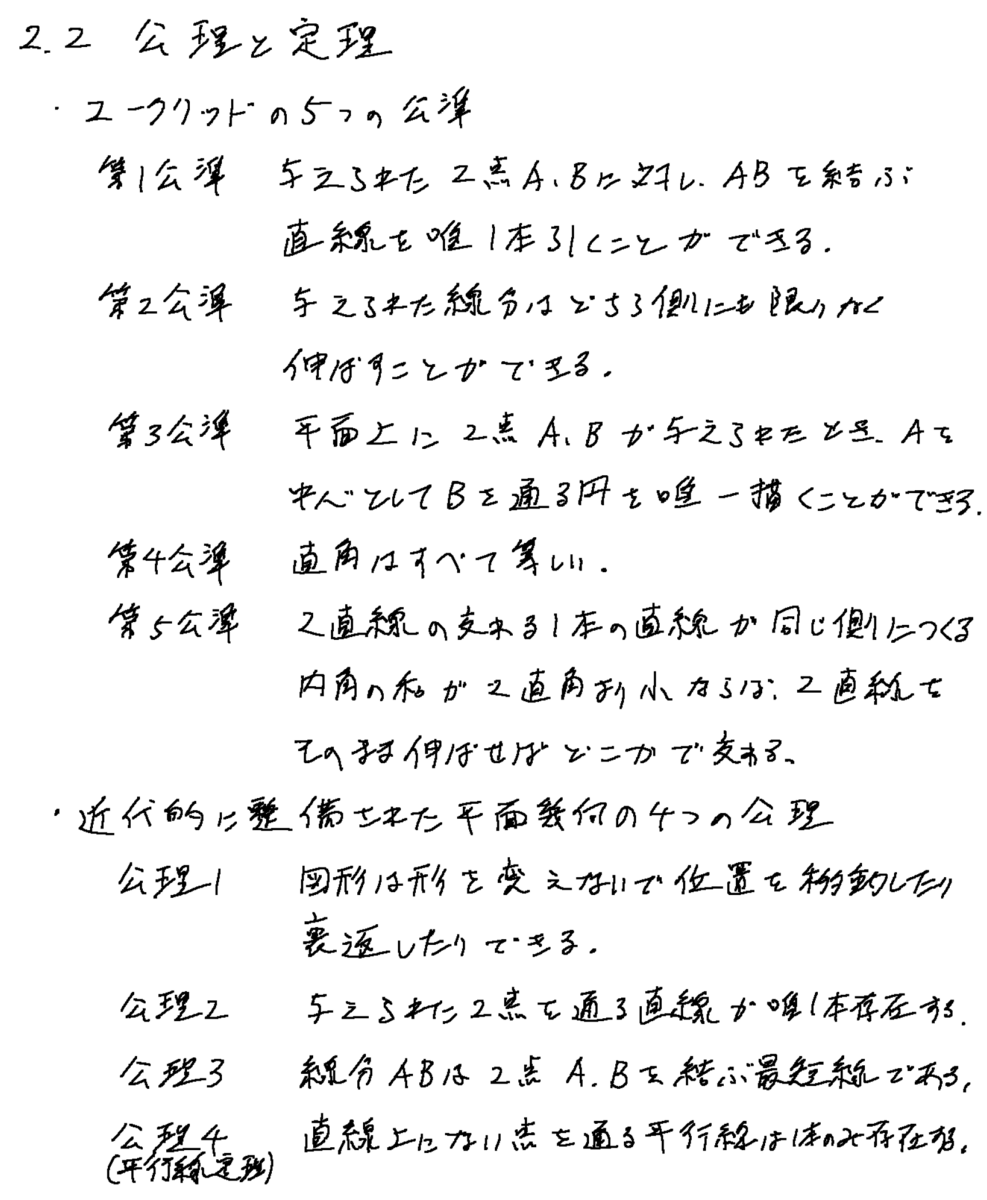 2.2 公理と定理
・ユークリッドの5つの公準
第1公準 与えられた2点A、Bに対し、ABを結ぶ
直線を唯1本引くことができる.
第2公準 与えられた線分はどちら側にも限りなく
伸ばすことができる.
第3公準 平面上に2点A、Bが与えられたとき、Aを
中心としてBを通る円を唯一描くことができる.
第4公準 直角はすべて等しい.
第5公準 2直線の交わる1本の直線が同じ側につくる
内角の和が2直角より小ならば、2直線を
そのまま伸ばせばどこかで交わる、
・近代的に整備された平面幾何の4つの公理
公理1 図形は形を変えないで位置を移動したり
裏返したりできる.
公理2 与えられた2点を通る直線が唯1本存在する.
公理3 線分ABは2点A.Bを結ぶ最短線である.
公理4 直線上にない点を通る平行線は1本のみ存在する.
(平行線定理)